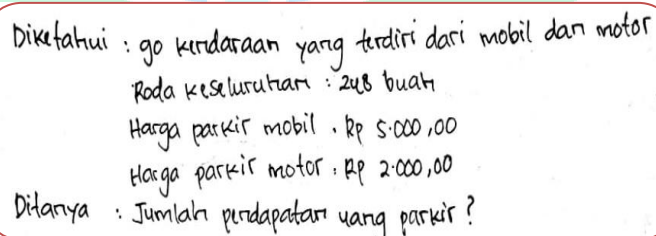 Diketahui : 90 kendaraan yang terdiri dari mobil dan motor
Roda keseluruhan : 248 buah
Harga parkir mobil : Rp 5.000,00
Harga parkir motor : Rp 2.000,00
Ditanya : Jumlah pendapatan uang parkir ?